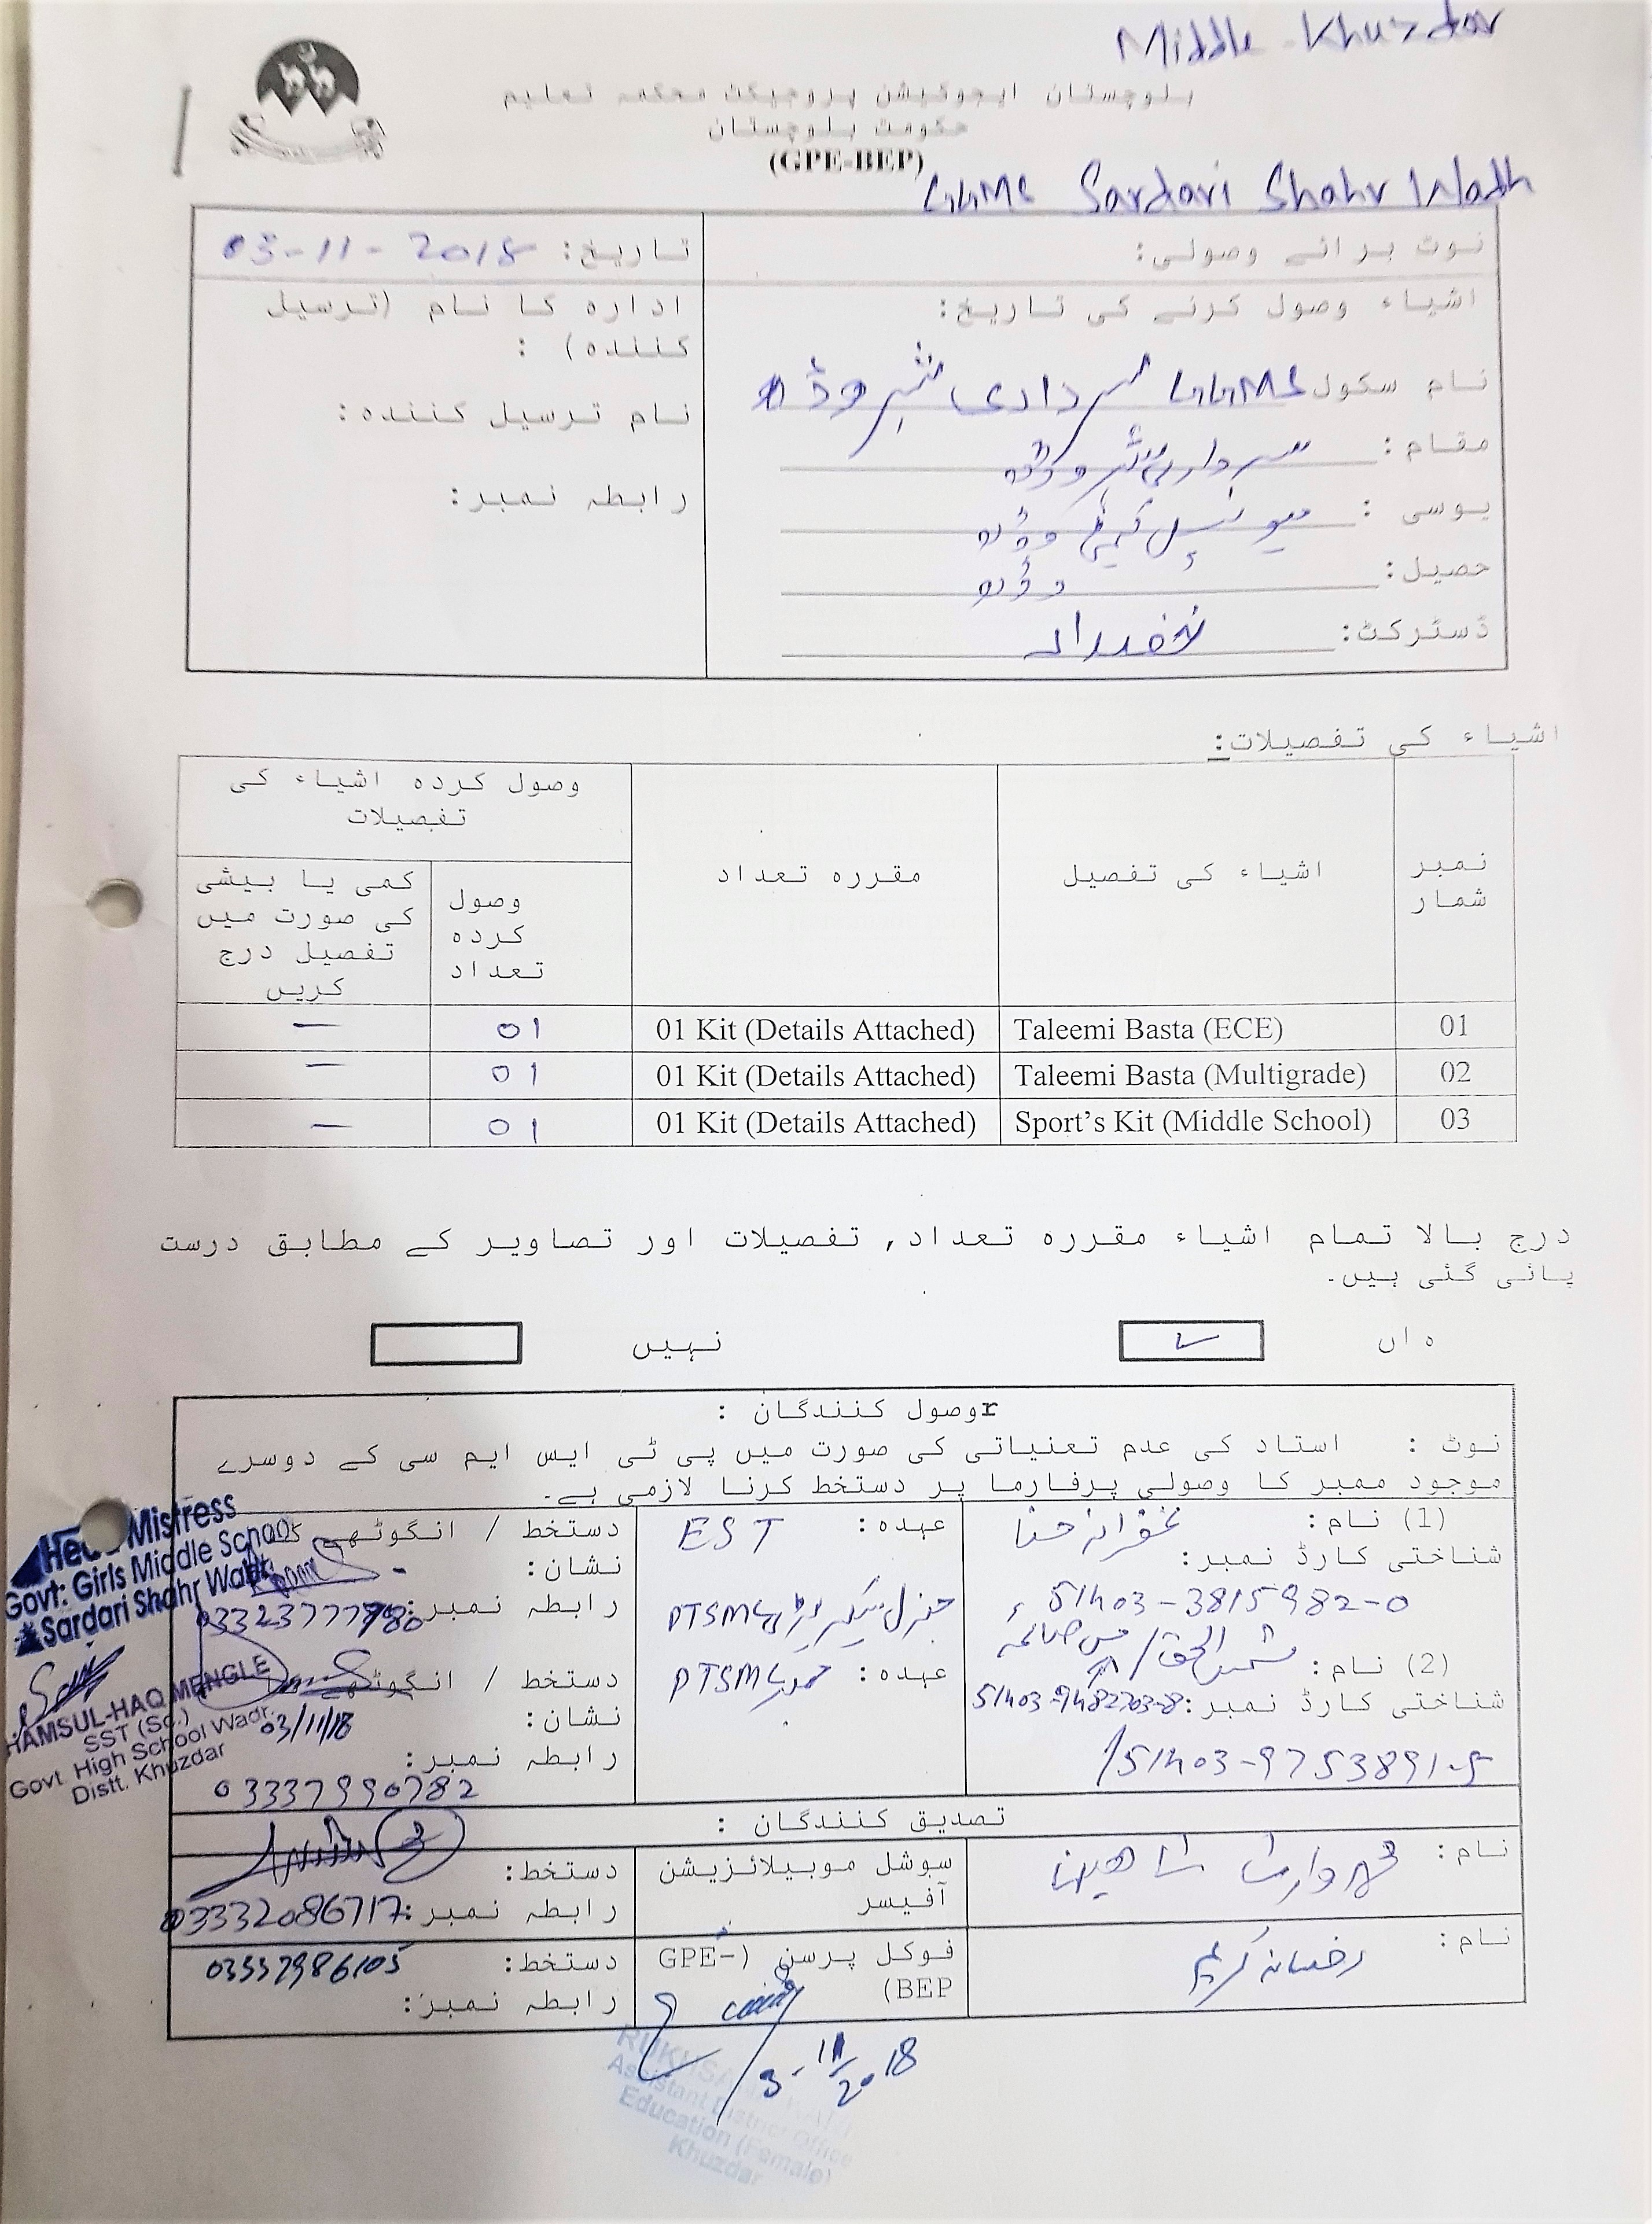 Middle Khuzdar
بلوچستان ایجوکیشن پروجیکٹ محکمہ تعلیم
حکومت بلوچستان
(GPE-BEP)
GGMS Sardari Shahr Wadh
نوٹ برائے وصولی:
تاریخ: 03-11-2018
اشیاء وصول کرنے کی تاریخ:
ادارہ کا نام (ترسیل
کنندہ) :
نام سکول GGMS سرداری شہر وڈھ
نام ترسیل کنندہ:
مقام: سرداری شہر وڈھ
رابطہ نمبر:
یوسی : میونسپل کمیٹی وڈھ
حصیل: وڈھ
ڈسٹرکٹ: خضدار
اشیاء کی تفصیلات:
نمبر شمار
اشیاء کی تفصیل
مقررہ تعداد
وصول کردہ اشیاء کی
تفصیلات
وصول کردہ تعداد
کمی یا بیشی
کی صورت میں
تفصیل درج
کریں
01 Taleemi Basta (ECE) 01 Kit (Details Attached) 01 —
02 Taleemi Basta (Multigrade) 01 Kit (Details Attached) 01 —
03 Sport's Kit (Middle School) 01 Kit (Details Attached) 01 —
درج بالا تمام اشیاء مقررہ تعداد, تفصیلات اور تصاویر کے مطابق درست
پائی گئی ہیں۔
ہاں ✓ نہیں
rوصول کنندگان :
نوٹ : استاد کی عدم تعنیاتی کی صورت میں پی ٹی ایس ایم سی کے دوسرے
موجود ممبر کا وصولی پرفارما پر دستخط کرنا لازمی ہے۔
(1) نام: حنا
عہدہ: EST
دستخط / انگوٹھے کا
نشان:
شناختی کارڈ نمبر:
51403-3815982-0
جنرل سیکریٹری PTSMC
رابطہ نمبر: 03323777980
(2) نام: شمس الحق /
عہدہ: ممبر PTSMC
دستخط / انگوٹھے
نشان:
03/11/18
شناختی کارڈ نمبر: 51403-9482203-8
/51403-9753891-5
رابطہ نمبر:
03337990782
Head Mistress
Govt: Girls Middle School
Sardari Shahr Wadh
SHAMSUL-HAQ MENGLE
SST (Sc.)
Govt. High School Wadh.
Distt. Khuzdar
تصدیق کنندگان :
نام: محمد وارث شاہین
سوشل موبیلائزیشن
آفیسر
دستخط:
رابطہ نمبر: 03332086717
نام: رخسانہ کریم
فوکل پرسن (GPE-
BEP)
دستخط: 03337986105
رابطہ نمبر:
3-11-2018
Assistant District Office
Education (Female)
Khuzdar